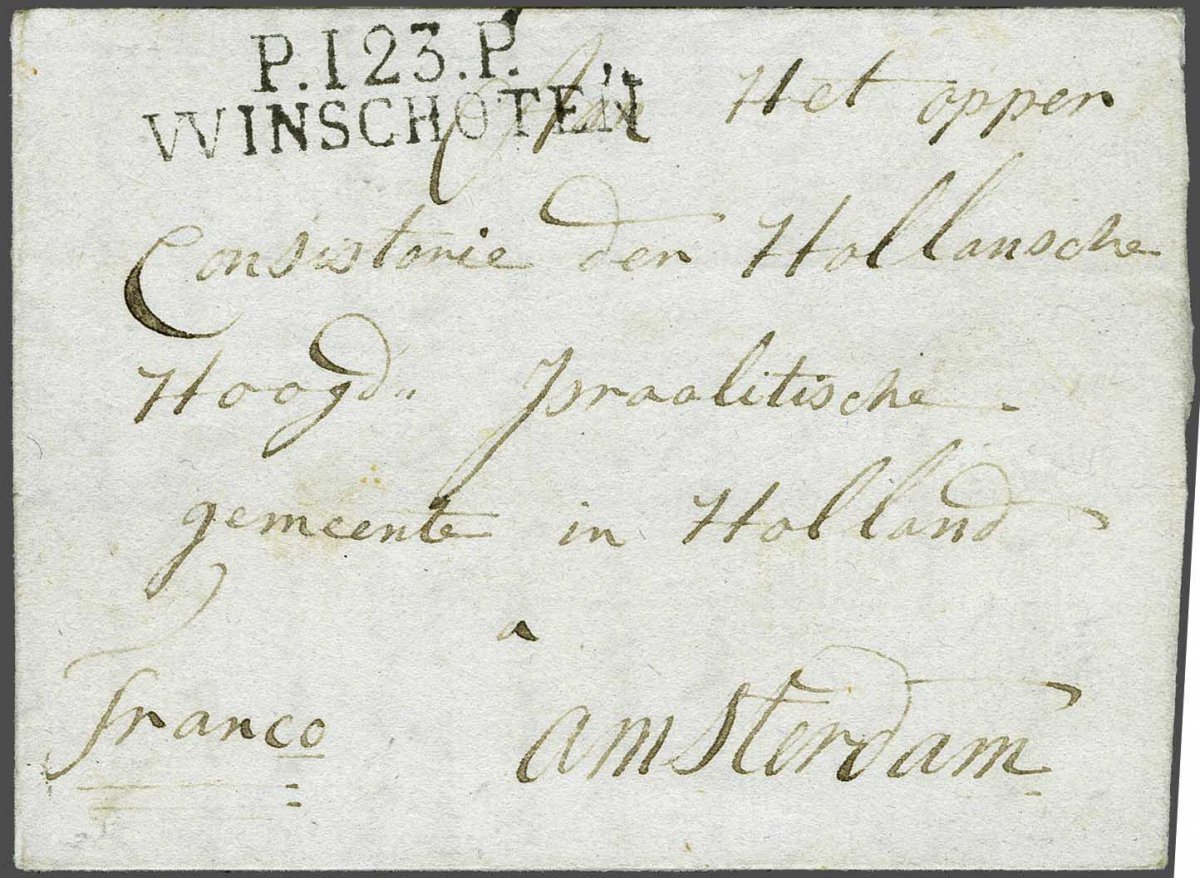 P.123.P.
WINSCHOTEN
Aan Het opper
Consistorie der Hollansche
Hoogd" Israalitische
gemeente in Holland
a
Franco
amsterdam